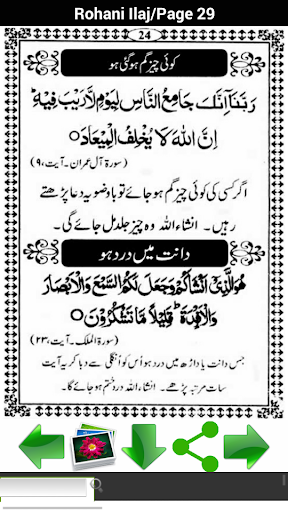 Rohani Ilaj/Page 29
24
کوئی چیز گم ہو گئی ہو
رَبَّنَآ اِنَّكَ جَامِعُ النَّاسِ لِیَوْمٍ لَّا رَیْبَ فِیْهِ ؕ
اِنَّ اللّٰهَ لَا یُخْلِفُ الْمِیْعَادَ ○
(سورۃ آل عمران۔ آیت، ۹)
اگر کسی کی کوئی چیز گم ہو جائے تو باوضو یہ دعا پڑھتے
رہیں۔ انشاء اللہ وہ چیز جلد مل جائے گی۔
دانت میں درد ہو
هُوَ الَّذِیْۤ اَنْشَاَكُمْ وَجَعَلَ لَكُمُ السَّمْعَ وَالْاَبْصَارَ
وَالْاَفْـِٕدَةَ ؕ قَلِیْلًا مَّا تَشْكُرُوْنَ ○
(سورۃ الملک۔ آیت، ۲۳)
جس دانت یا داڑھ میں درد ہو اُس کو اُنگلی سے دبا کر یہ آیت
سات مرتبہ پڑھے۔ انشاء اللہ درد ختم ہو جائے گا۔